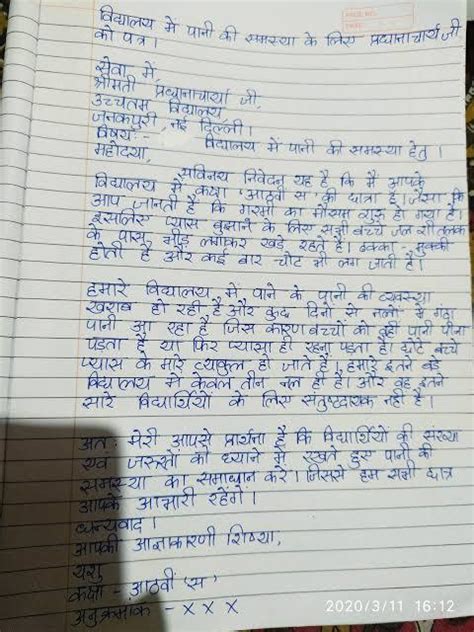 विद्यालय में पानी की समस्या के लिए प्रधानाचार्य जी
को पत्र।
सेवा में,
श्रीमती प्रधानाचार्या जी,
उच्चतम विद्यालय
जनकपुरी नई दिल्ली।
विषय:- विद्यालय में पानी की समस्या हेतु।
महोदया,
सविनय निवेदन यह है कि मैं आपके
विद्यालय में कक्षा 'आठवीं स' की छात्रा हूँ। जैसा कि
आप जानती हैं कि गरमी का मौसम शुरू हो गया है।
इसलिए प्यास बुझाने के लिए सभी बच्चे जल शीतलक
के पास भीड़ लगाकर खड़े रहते हैं। धक्का - मुक्की
होती है और कई बार चोट भी लग जाती है।
हमारे विद्यालय में पीने के पानी की व्यवस्था
खराब हो रही है और कुछ दिनों से नलों में गंदा
पानी आ रहा है जिस कारण बच्चों को वही पानी पीना
पड़ता है या फिर प्यासा ही रहना पड़ता है। छोटे बच्चे
प्यास के मारे व्याकुल हो जाते हैं, हमारे इतने बड़े
विद्यालय में केवल तीन नल ही हैं। और वह इतने
सारे विद्यार्थियों के लिए संतुष्टदायक नहीं है।
अत: मेरी आपसे प्रार्थना है कि विद्यार्थियों की संख्या
एवं जरूरतों को ध्यान में रखते हुए पानी की
समस्या का समाधान करें। जिससे हम सभी छात्र
आपके आभारी रहेंगे।
धन्यवाद।
आपकी आज्ञाकारणी शिष्या,
यशु
कक्षा - आठवीं 'स'
अनुक्रमांक - x x x
2020/3/11 16:12